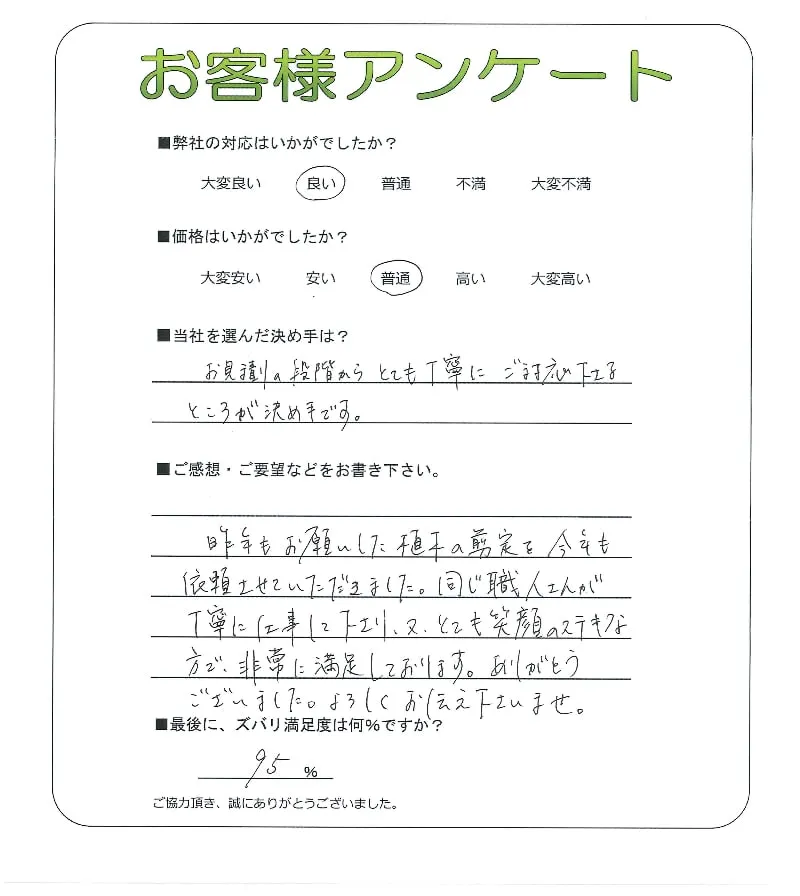 お客様アンケート
■弊社の対応はいかがでしたか？
大変良い 良い 普通 不満 大変不満
■価格はいかがでしたか？
大変安い 安い 普通 高い 大変高い
■当社を選んだ決め手は？
お見積りの段階からとても丁寧にご対応下さる
ところが決め手です。
■ご感想・ご要望などをお書き下さい。
昨年もお願いした植木の剪定を今年も
依頼させていただきました。同じ職人さんが
丁寧に仕事して下さり、又、とても笑顔のステキな
方で、非常に満足しております。ありがとう
ございました。よろしくお伝え下さいませ。
■最後に、ズバリ満足度は何%ですか？
95 %
ご協力頂き、誠にありがとうございました。